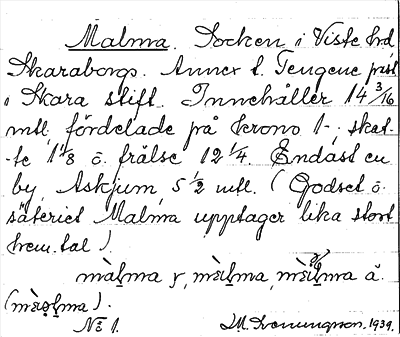 Malma. Socken i Viste hrd
Skaraborgs. Annex t. Tengene past
i Skara stift. Innehåller 14 3/16
mtl, fördelade på krono 1-, skat-
-te 1 1/8 o. frälse 12 1/4. Endast en
by, Askjum, 5 1/2 mtl. (Godset o.
säteriet Malma upptager lika stort
hem.tal).
màḷma γ, mæ̀ḷma, mæ̀ḷma å.
(mæ̀ḷma).
No 1. 1939.